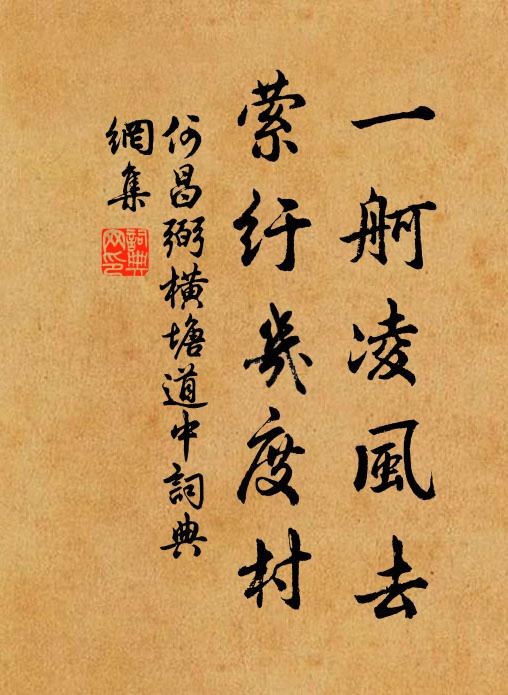 一舸凌風去
縈紆幾度村
何昌弼橫塘道中詞典
網集
詞典
网印